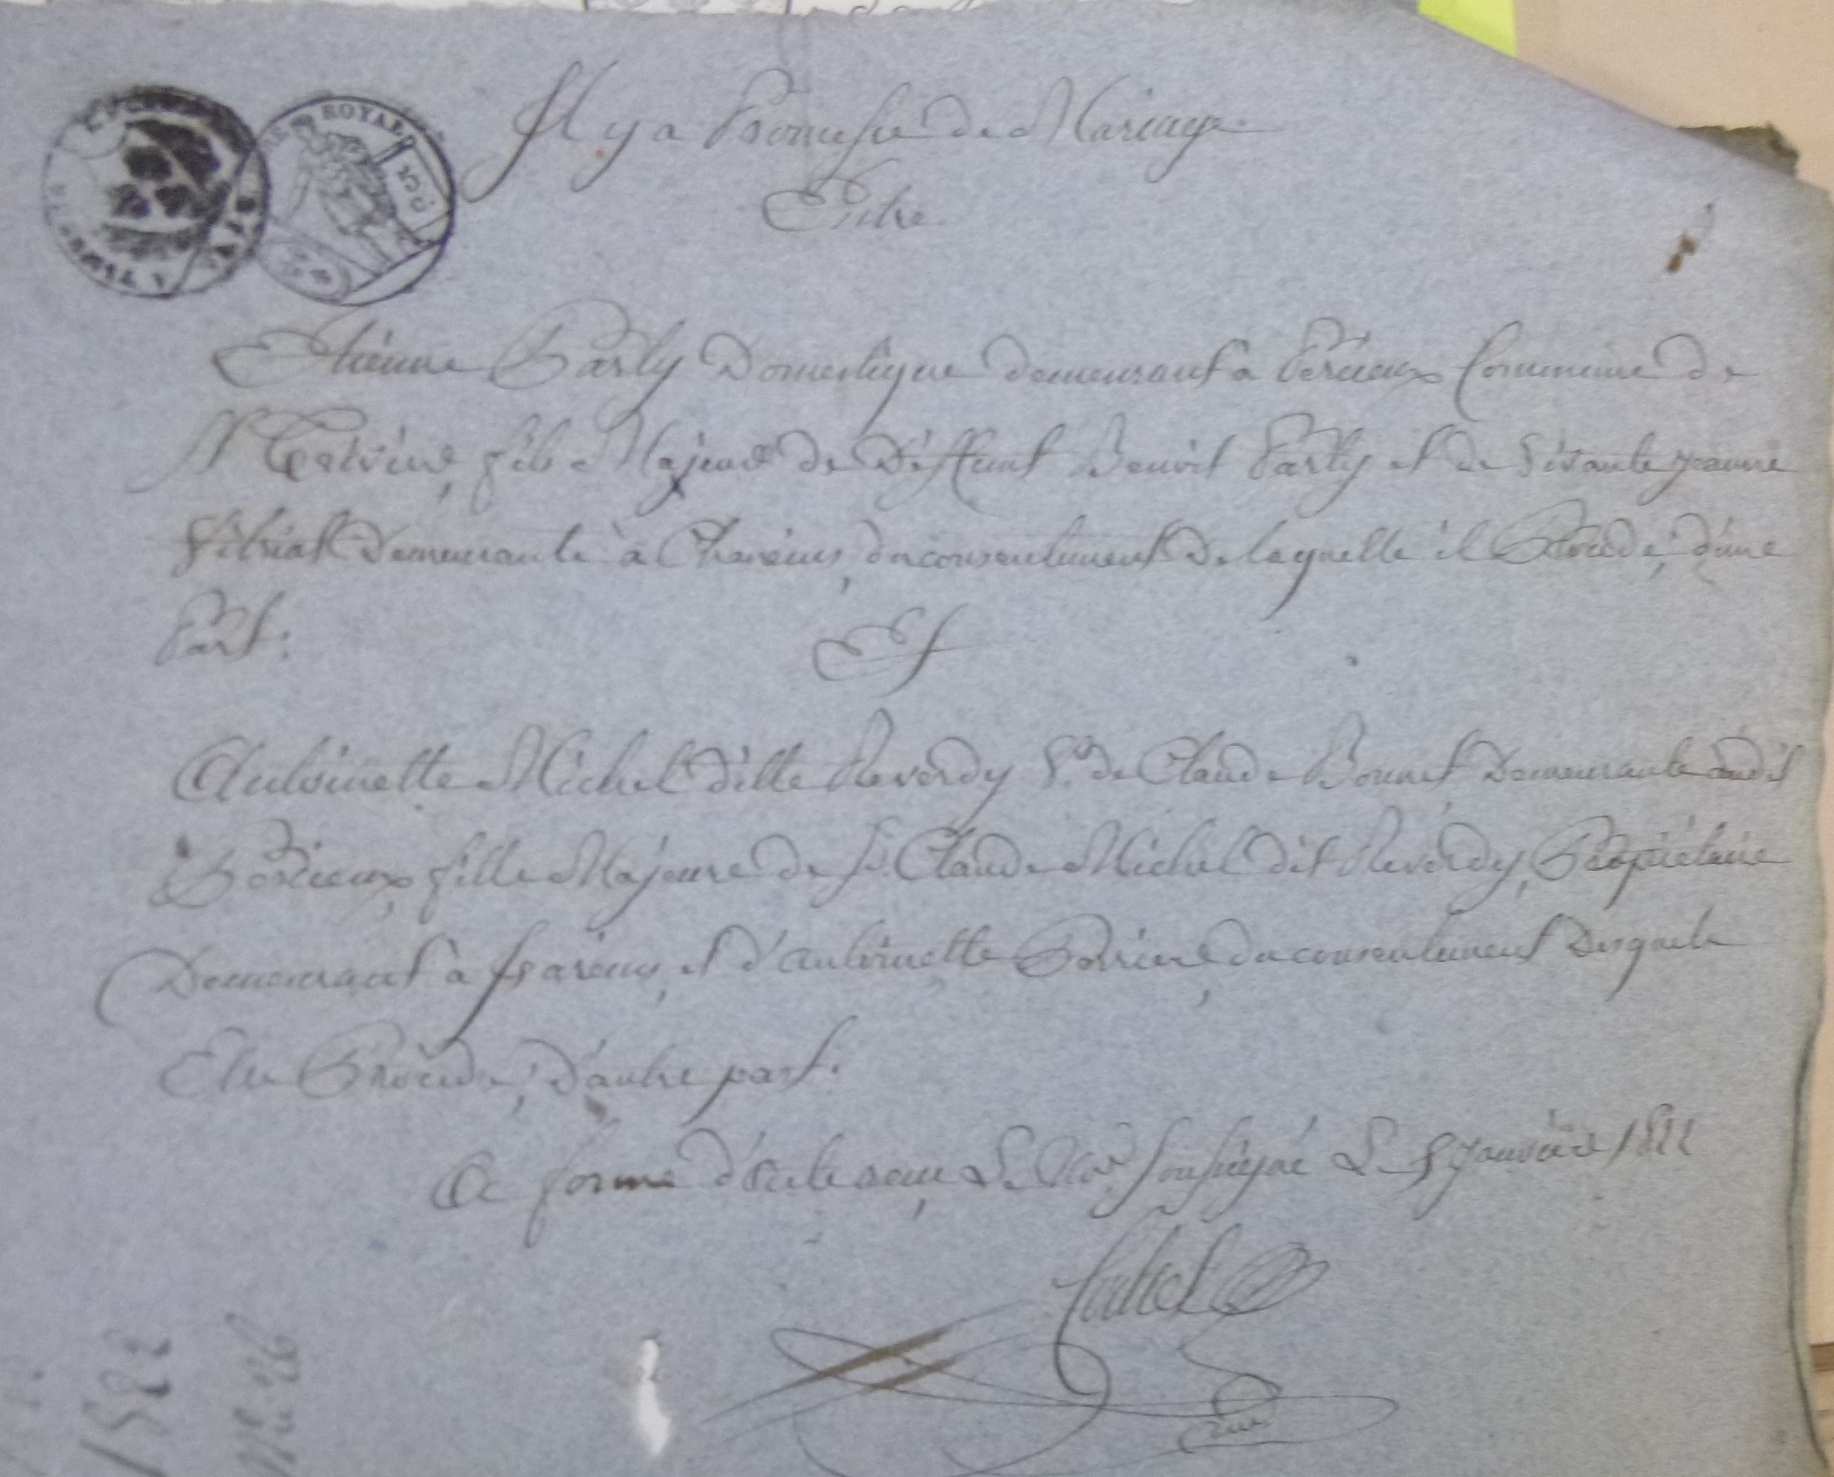 ROYALE
Il y a Promesse de Mariage
Entre
Etienne Parly Domestique demeurant à Périeux Commune de
St fils Majeur de Deffunt Benoit Parly et de Vivante jeanne
demeurante à du consentement de laquelle il Procéde, d'une
Part.
Et
Antoinette Michel ditte Reverdy Ve. de Claude Bonnet Demeurante audit
Périeux, fille Majeure de Sr. Claude Michel dit Reverdy, Propriétaire
Demeurant à et d'antoinette du consentement desquels
Elle Procéde, d'autre part.
De forme d'acte recu, Le Nore. soussigné Le janvier 1822
1582